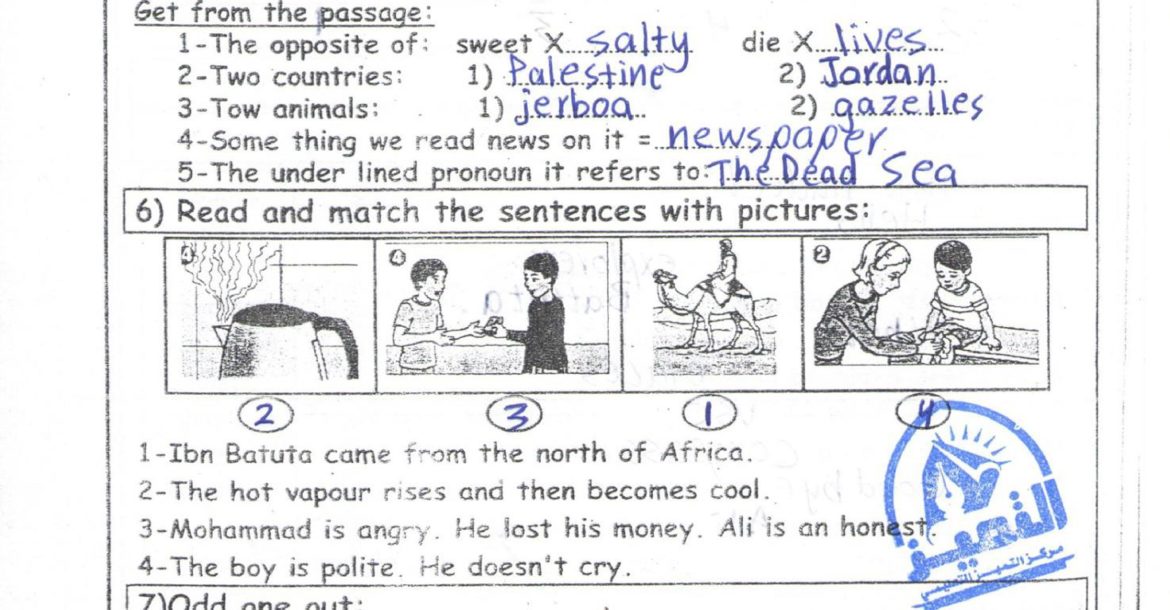 Get from the passage:
1-The opposite of: sweet X....salty die X....lives....
2-Two countries: 1) Palestine 2) Jordan..
3-Tow animals: 1) jerboa.. 2) gazelles
4-Some thing we read news on it =..newspaper
5-The under lined pronoun it refers to:The Dead Sea
6) Read and match the sentences with pictures:
2 3 1 4
1-Ibn Batuta came from the north of Africa.
2-The hot vapour rises and then becomes cool.
3-Mohammad is angry. He lost his money. Ali is an honest.
4-The boy is polite. He doesn't cry.
التميز
مركز التميز التعليمي
7)Odd one out: